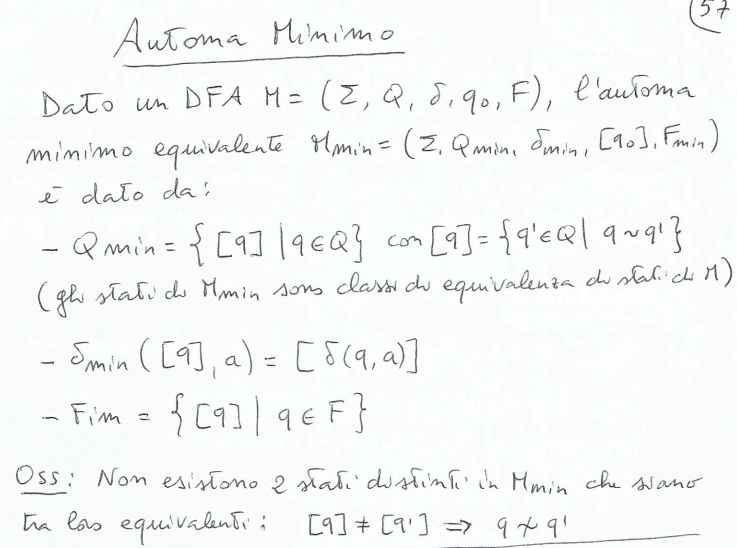 57
Automa Minimo
Dato un DFA M = (Σ, Q, δ, q₀, F), l'automa
minimo equivalente Mmin = (Σ, Qmin, δmin, [q₀], Fmin)
è dato da:
- Qmin = { [q] | q ∈ Q } con [q] = { q' ∈ Q | q ~ q' }
(gli stati di Mmin sono classi di equivalenza di stati di M)
- δmin ([q], a) = [ δ(q, a) ]
- Fim = { [q] | q ∈ F }
Oss: Non esistono 2 stati distinti in Mmin che siano
tra loro equivalenti: [q] ≠ [q'] ⇒ q ≁ q'